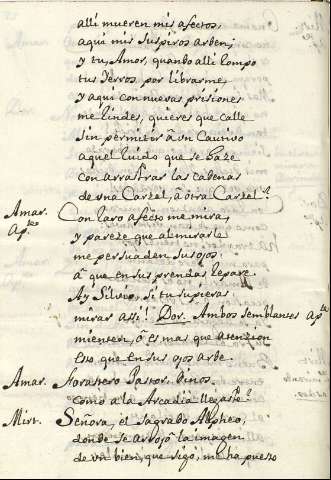 alli mueren mis afectos,
aqui mis suspiros arden;
y tu, Amor, quando alli rompo
tus yerros por librarme,
y aqui con nuevas prisiones
me rindes, quieres que calle
sin permitir â vn Cautivo
aquel ruido que se haze
con arrastrar las cadenas
de vna Carzel, â otra Carzel?
Amar. Con raro afecto me mira,
Apte y pareze que al mirarle
me persuaden sus ojos
â que en sus prendas repare.
Ay Silvio, si tu supieras
mirar assi! Dor. Ambos semblantes Apte
mienten, ô es mas que atencion
esto que en sus ojos arde.
Amar. Forastero Pastor, dinos,
como a la Arcadia llegaste?
Mirt. Señora, el sagrado Alpheo,
donde se arrojô la imagen
de vn bien, que sigo, me ha puesto